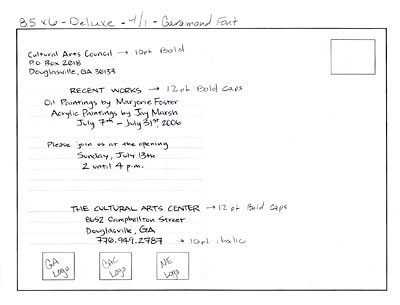 8.5 x 6 - Deluxe - 4/1 - Garamond Font
Cultural Arts Council → 10pt Bold
P.O. Box 2018
Douglasville, GA 30133
RECENT WORKS → 12pt Bold Caps
Oil Paintings by Marjorie Foster
Acrylic Paintings by Jay Marsh
July 7th - July 31st 2006
Please join us at the opening
Sunday, July 13th
2 until 4 p.m.
THE CULTURAL ARTS CENTER → 12 pt Bold Caps
8652 Campbellton Street
Douglasville, GA
770.949.2787 → 10pt italic
GA Logo
CAC Logo
NE Logo